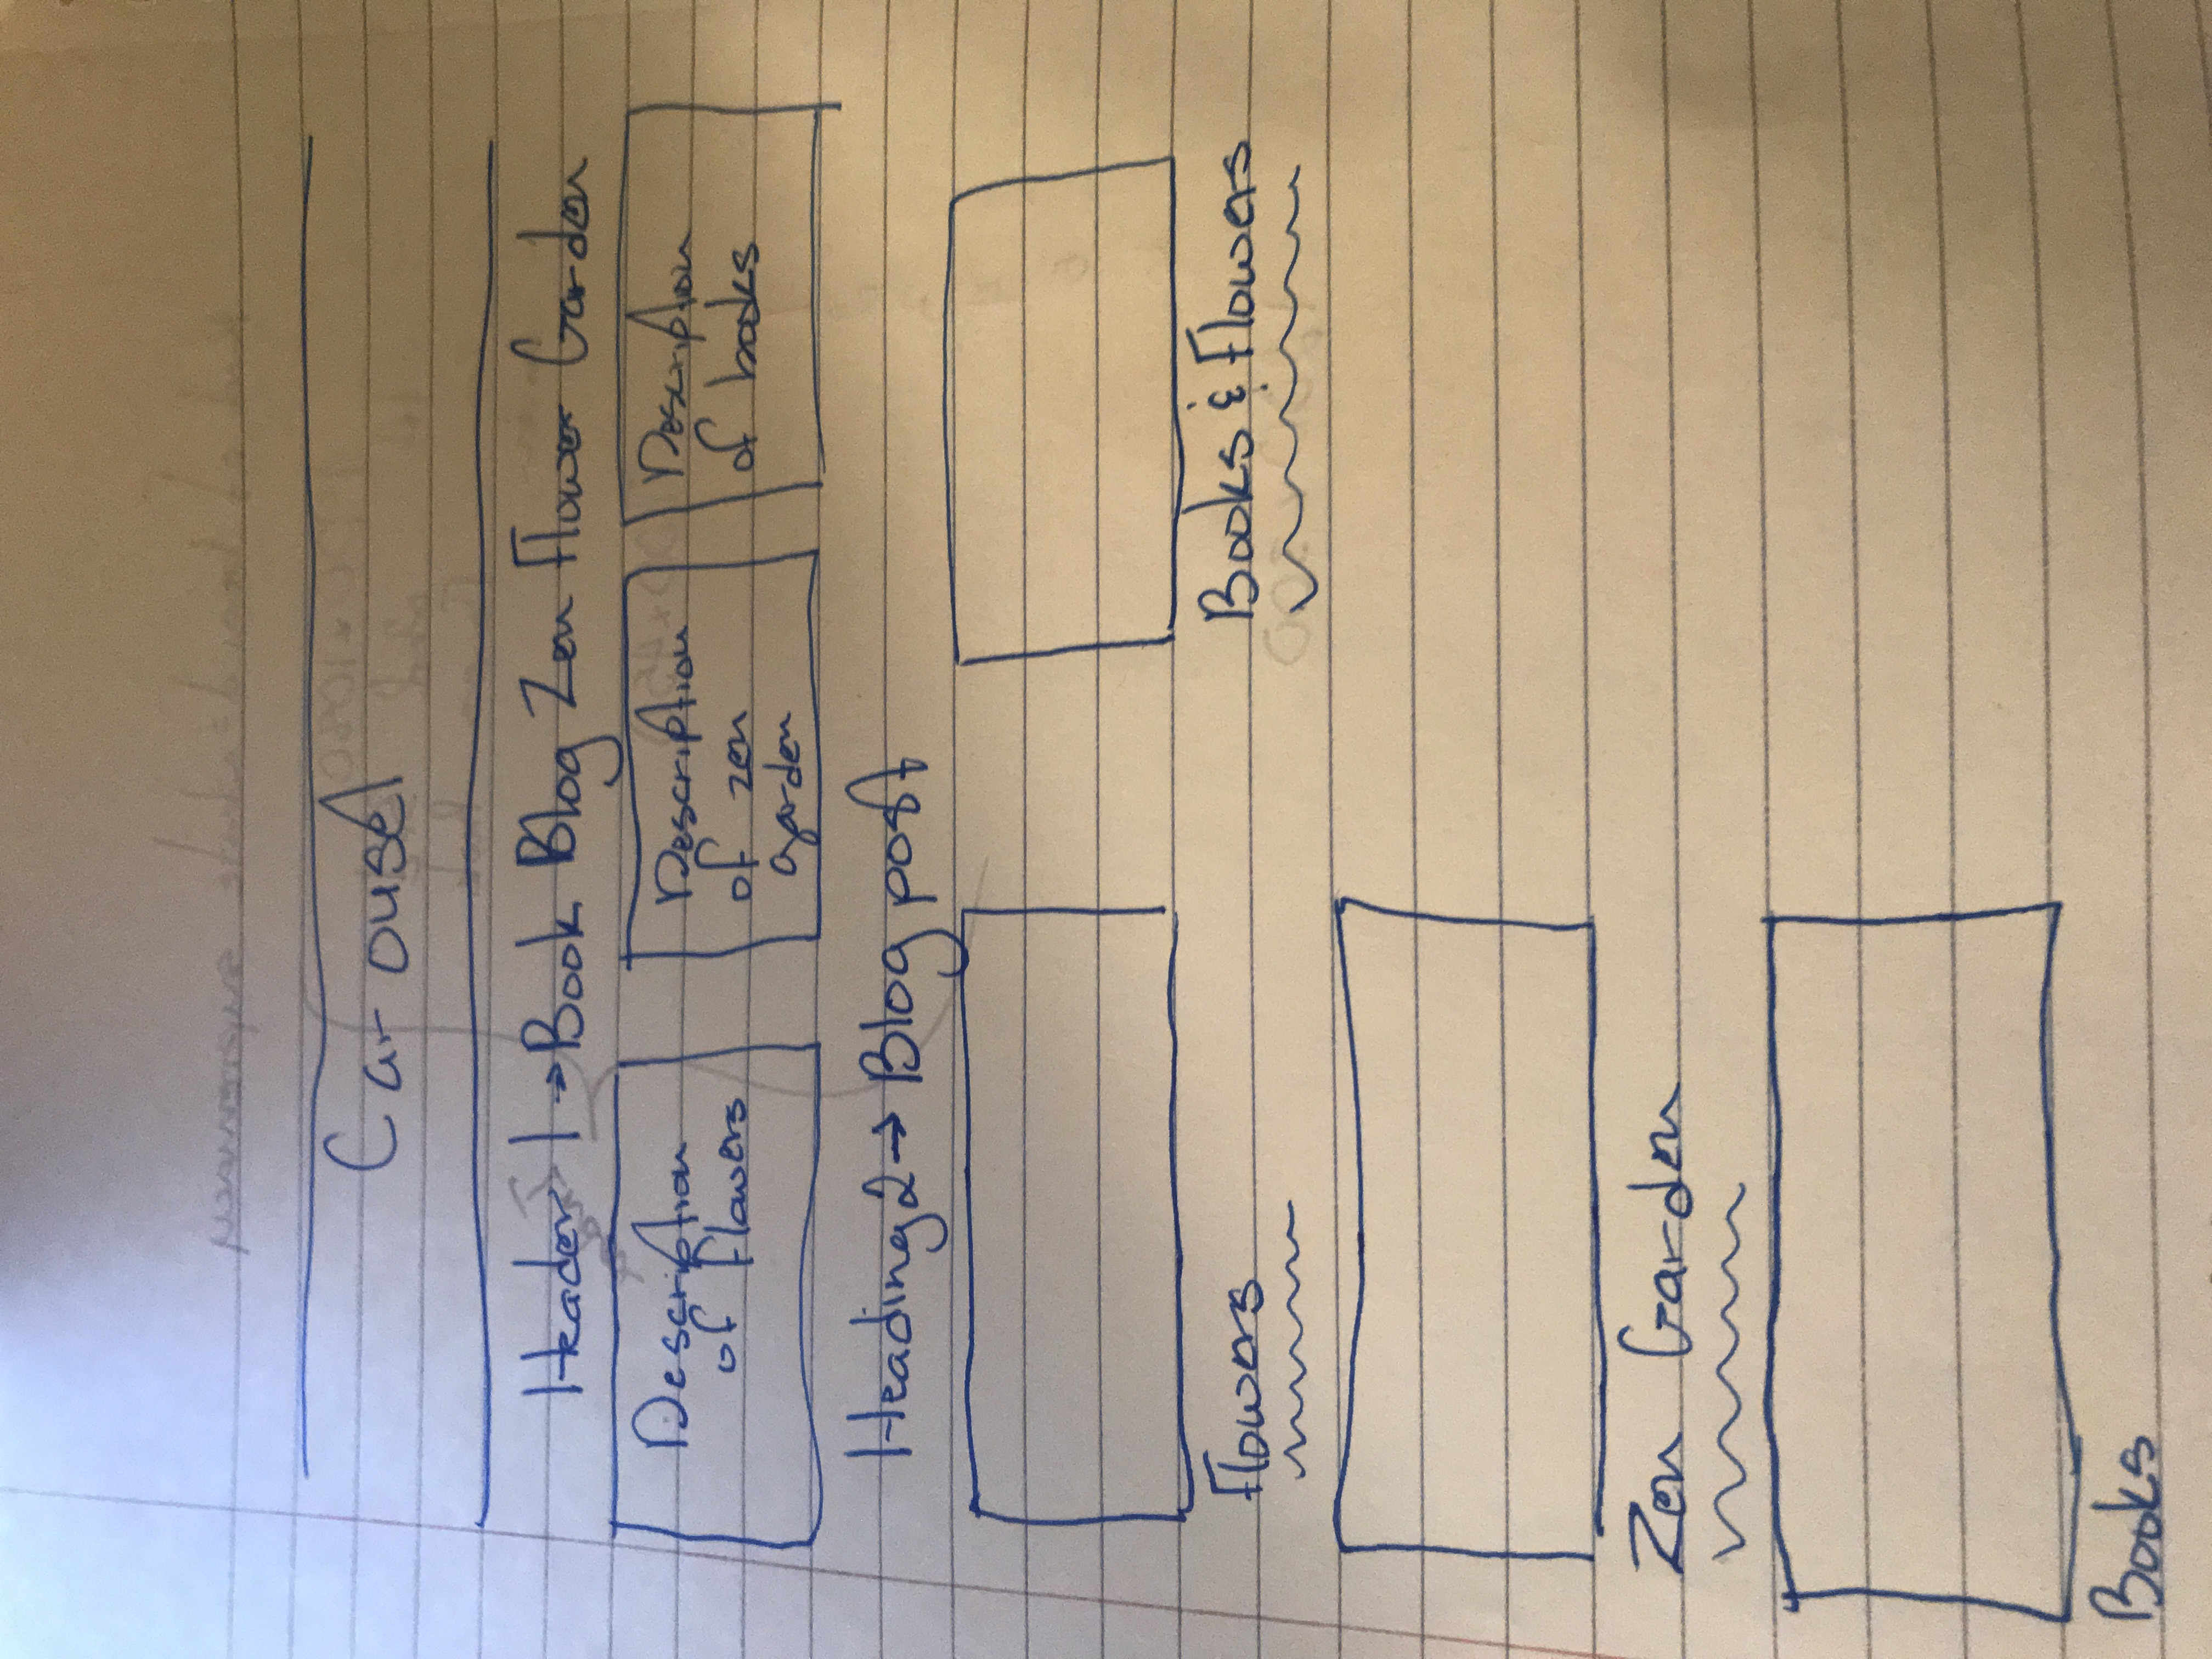 Carousel
Header 1 → Book Blog Zen Flower Garden
Description
of flowers
Description
of zen
garden
Description
of books
Heading 2 → Blog post
Flowers
Books & Flowers
Zen Garden
Books